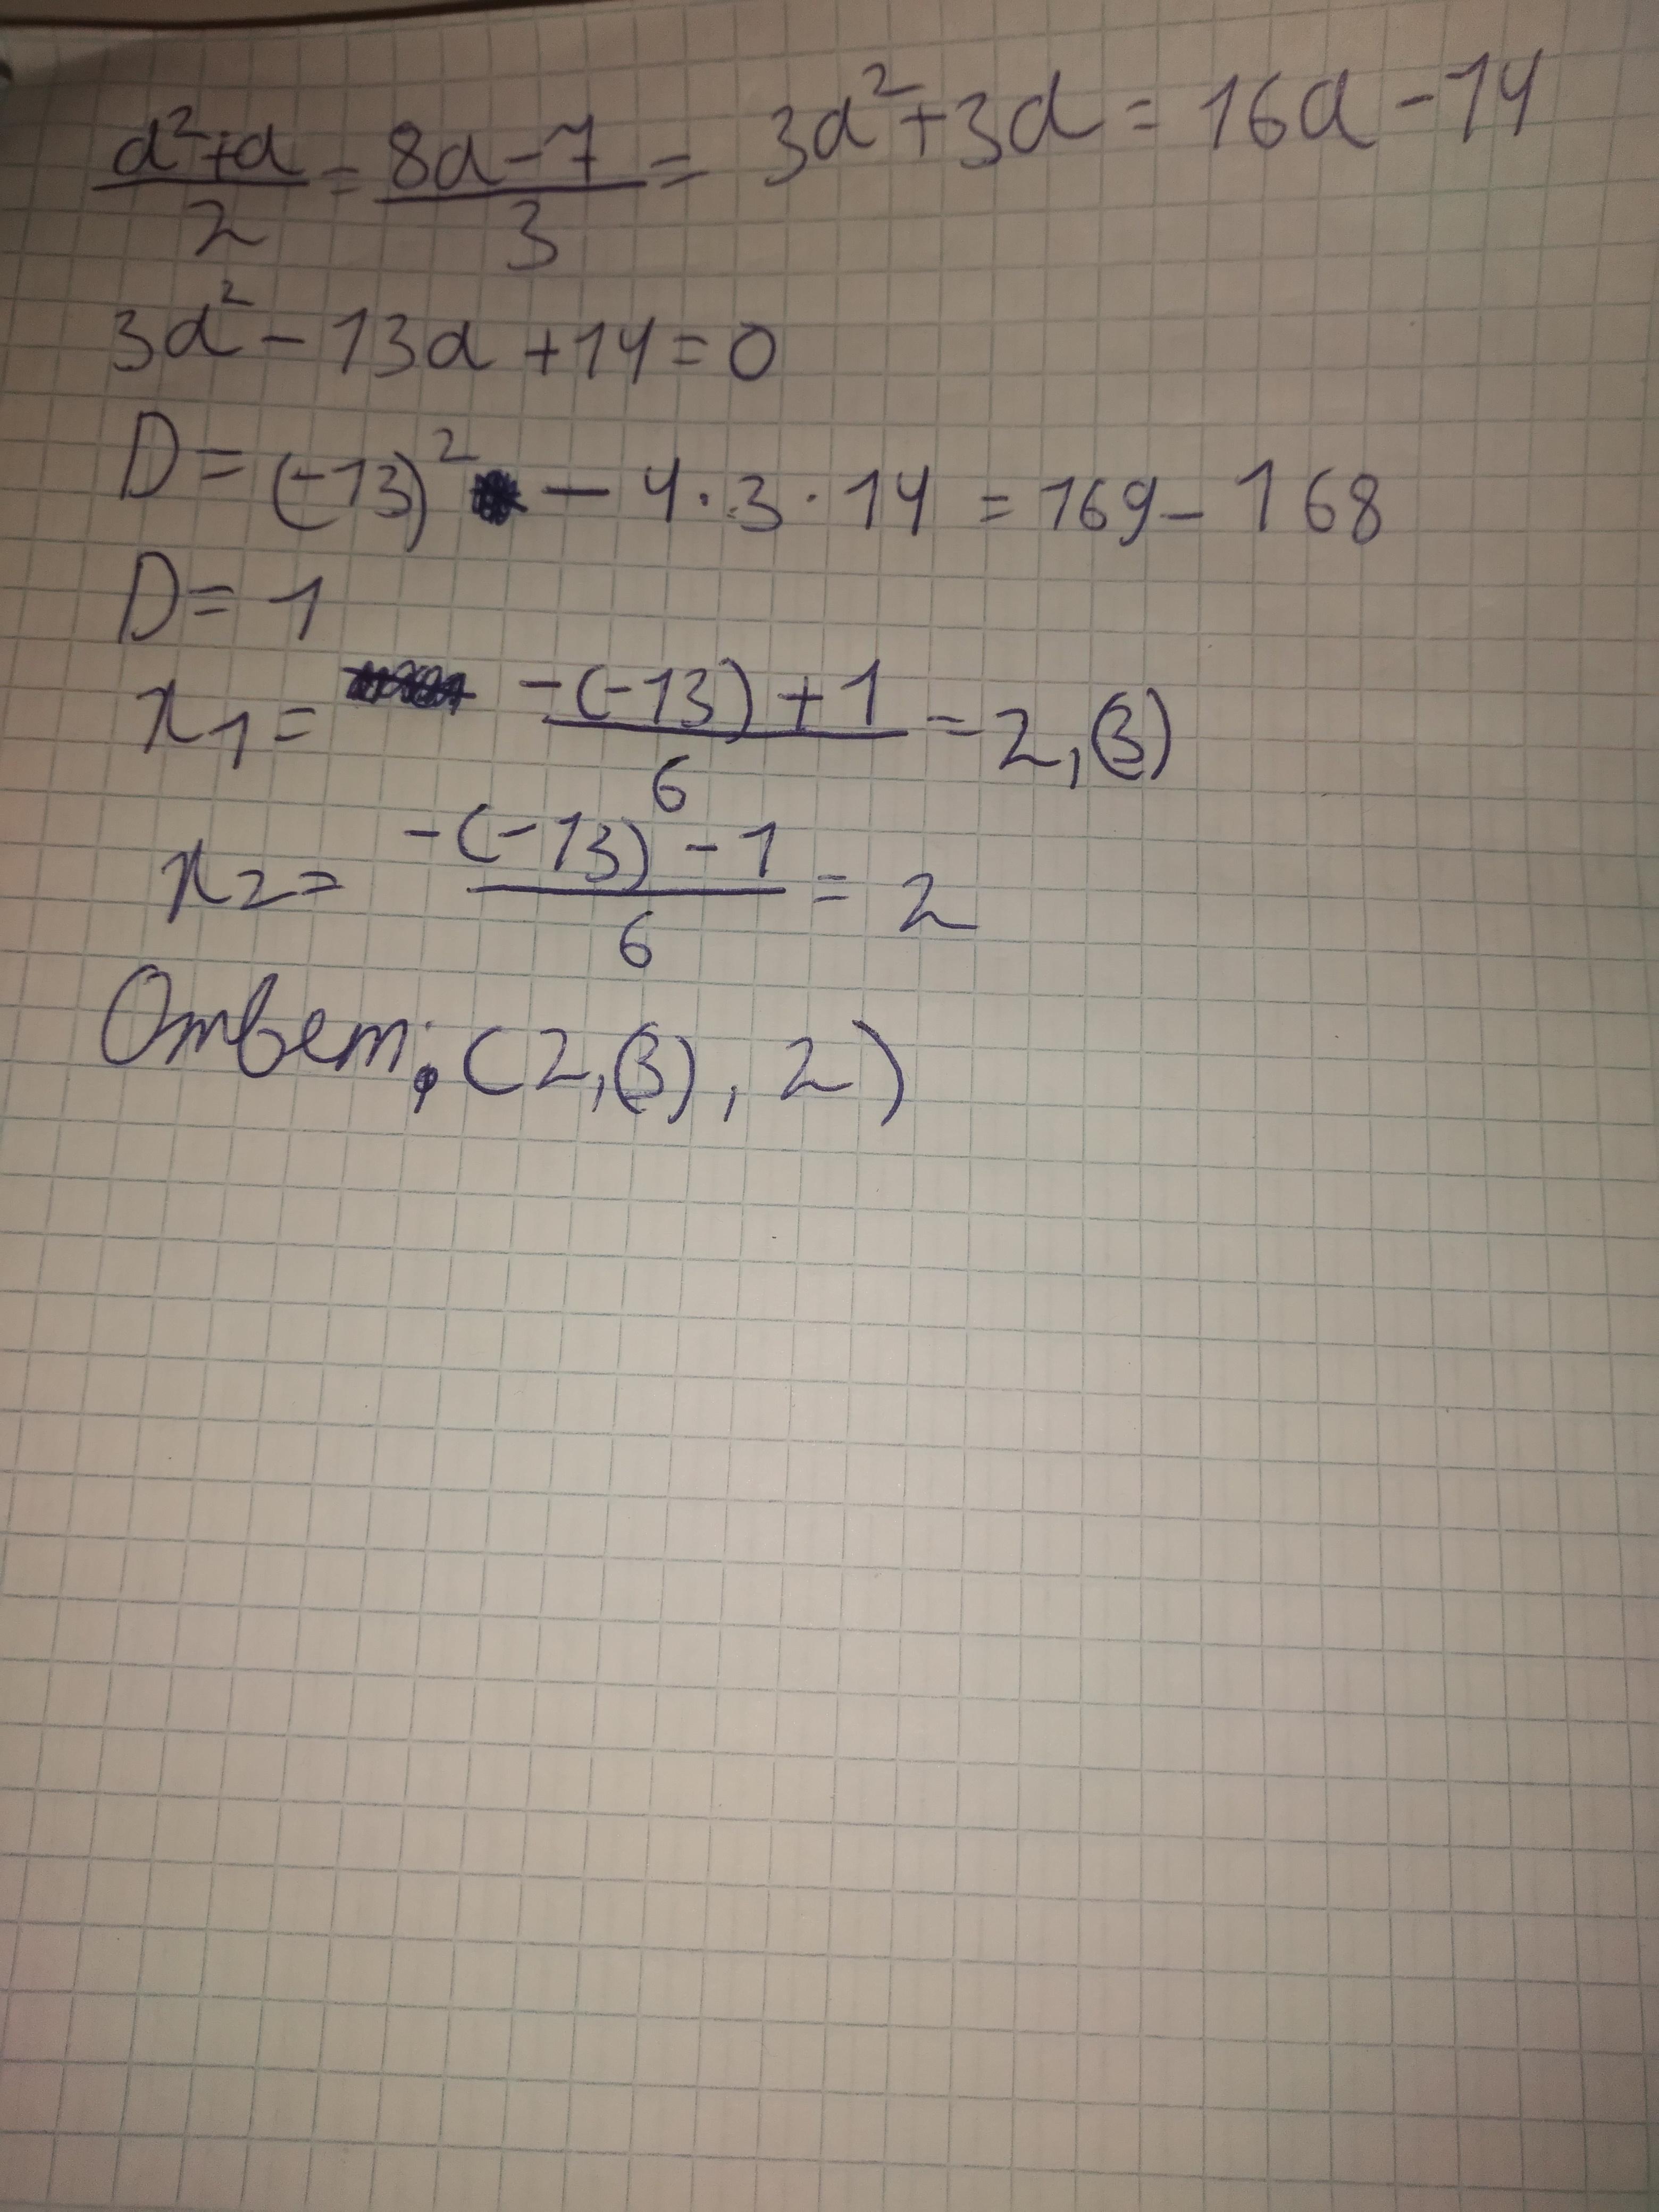 d²+d/2 = 8d-7/3 = 3d²+3d = 16d-14
3d² - 13d + 14 = 0
D = (-13)² - 4·3·14 = 169 - 168
D = 1
x₁ = -(-13)+1/6 = 2,(3)
x₂ = -(-13)-1/6 = 2
Ответ: (2,(3), 2)